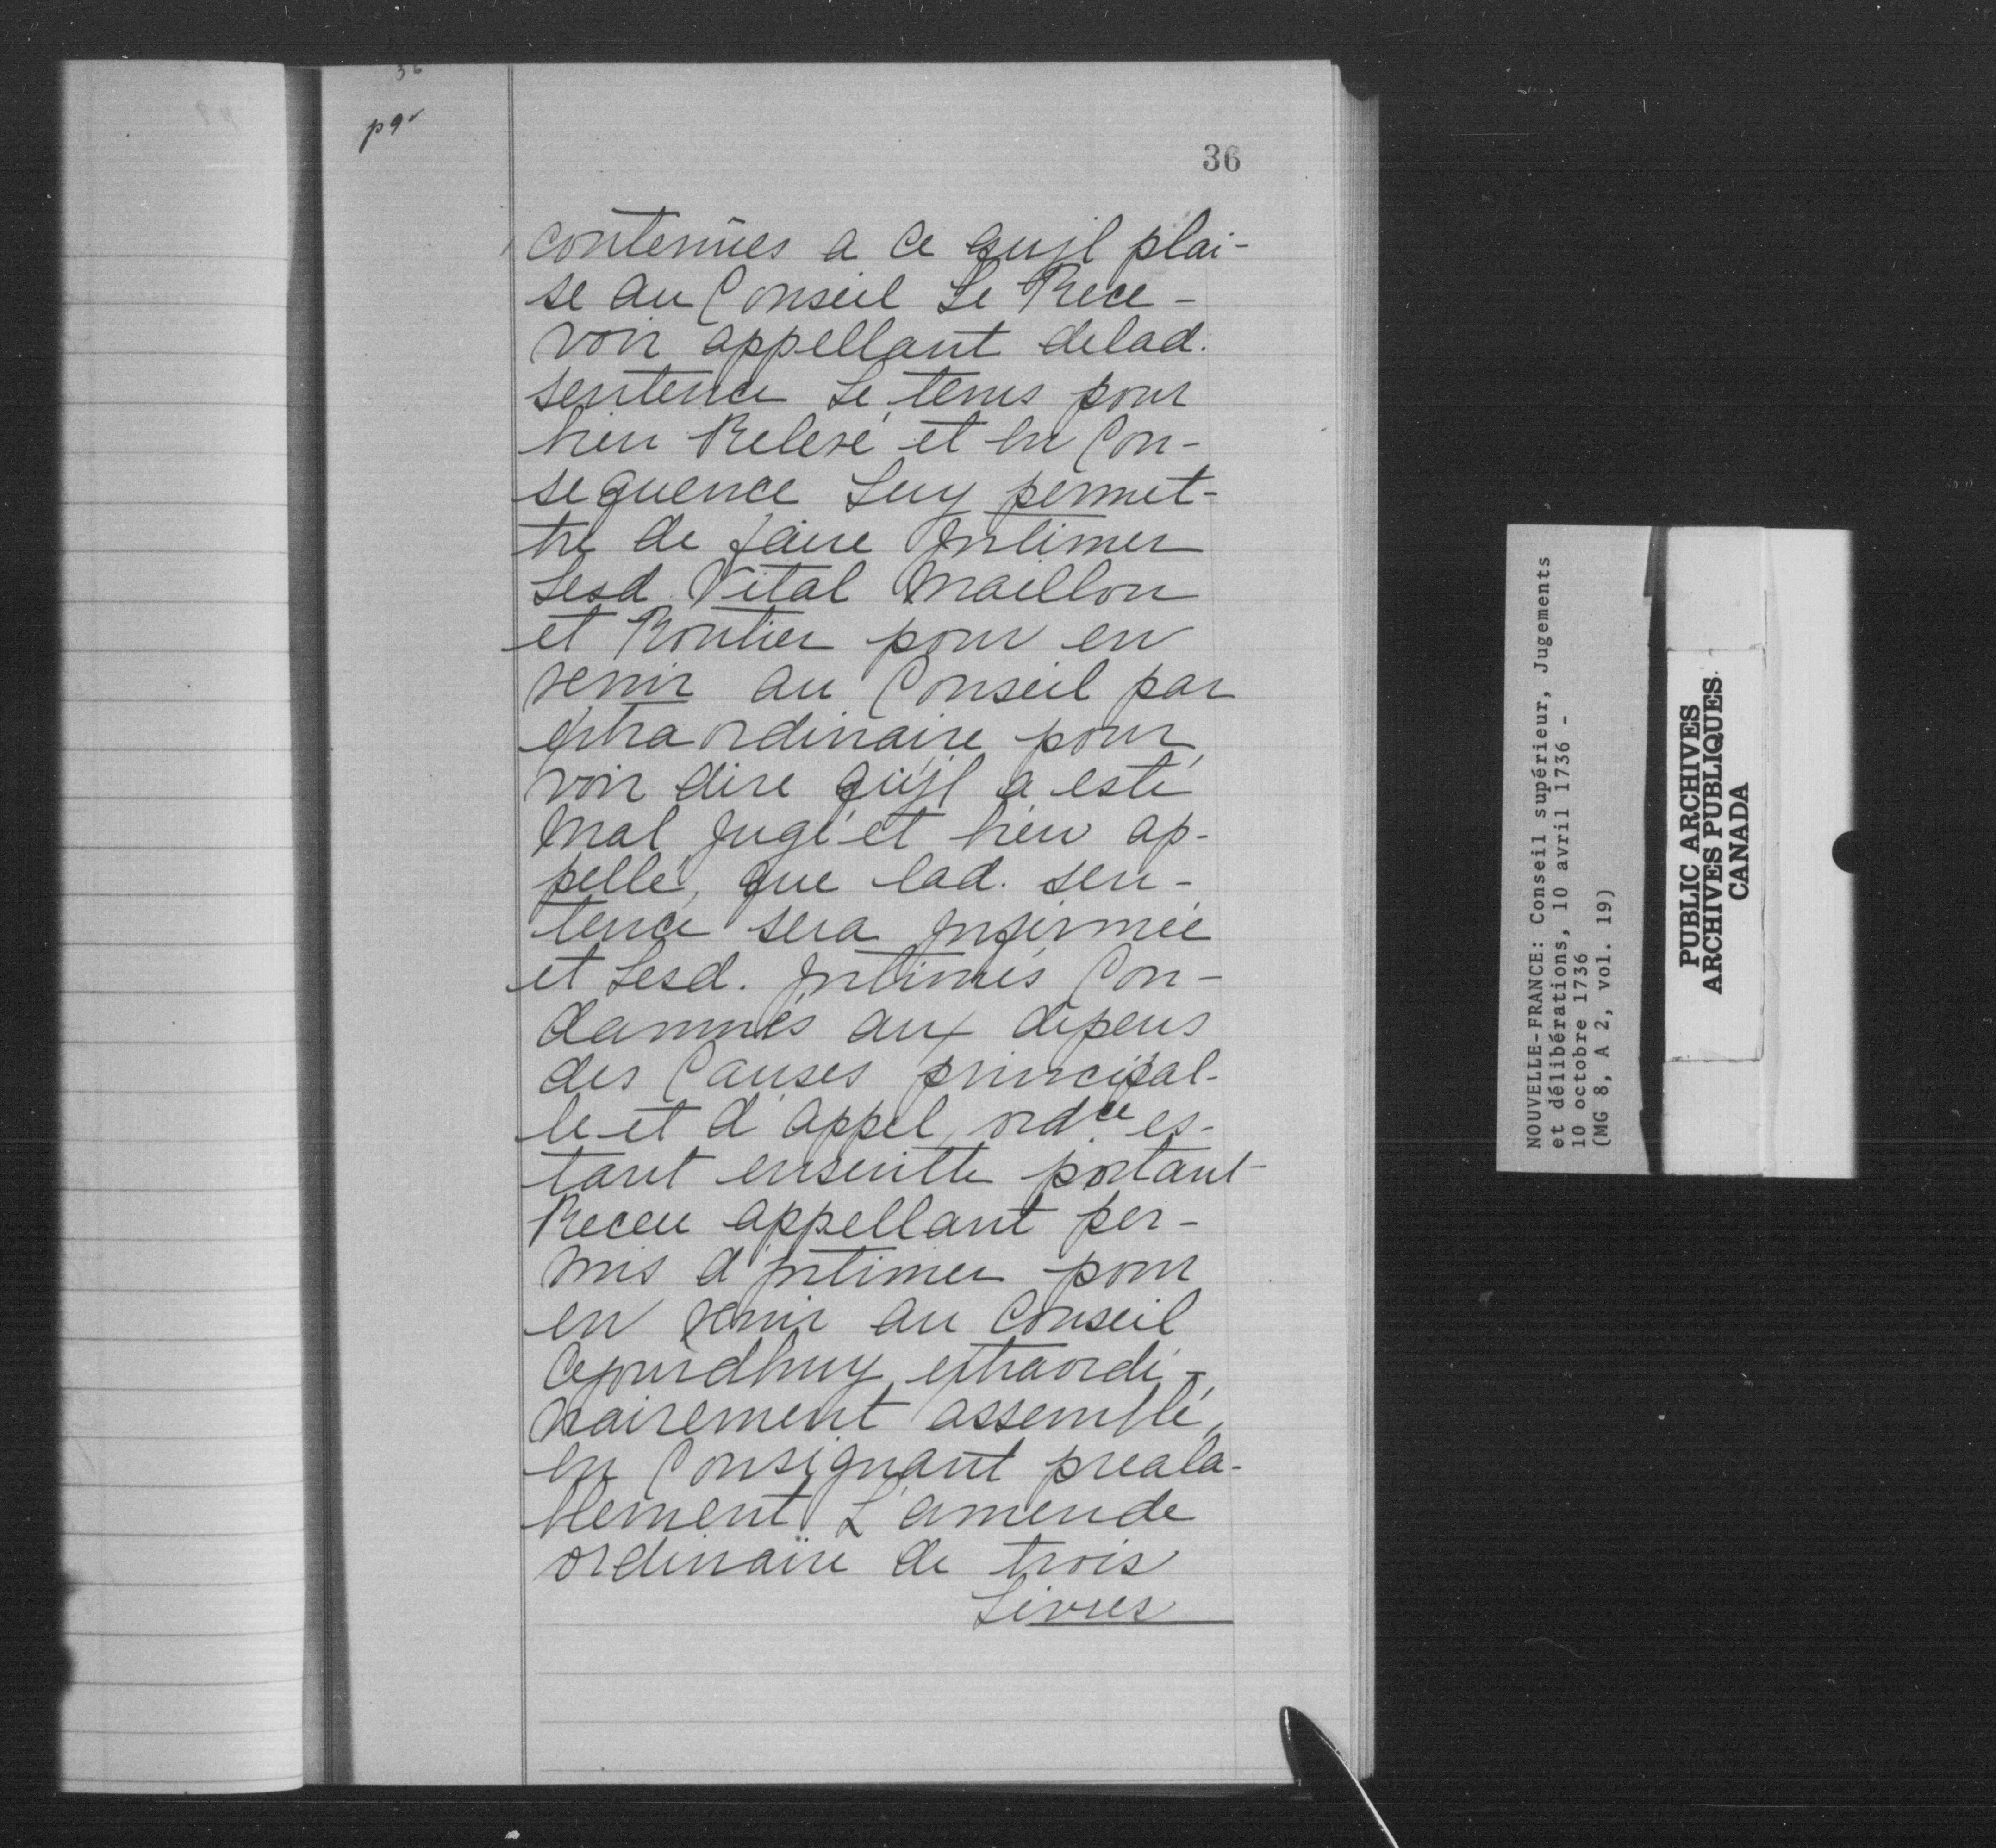 36
p 9v
36
contenües a ce qu'jl plai-
se au Conseil Le Rece-
voir appellant delad.
sentence Le tenir pour
bien Relevé et en Con-
sequence Luy permet-
tre de faire Jntimer
Lesd. Vital Maillou
et Routier pour en
venir au Conseil par
extraordinaire pour
voir dire qu'jl a esté
mal jugé et bien ap-
pellé, que lad. sen-
tence sera Jnfirmée
et Lesd. Jntimés Con-
damnés aux dépens
des Causes principal-
le et d'appel, ordce es-
tant ensuitte portant
Receu appellant per-
mis d'Jntimer pour
en venir au Conseil
Cejourdhuy extraordi-
nairement assemblé,
en Consignant preala-
blement L'amende
ordinaire de trois
Livres
NOUVELLE-FRANCE: Conseil supérieur, Jugements
et délibérations, 10 avril 1736 -
10 octobre 1736
(MG 8, A 2, vol. 19)
PUBLIC ARCHIVES
ARCHIVES PUBLIQUES
CANADA